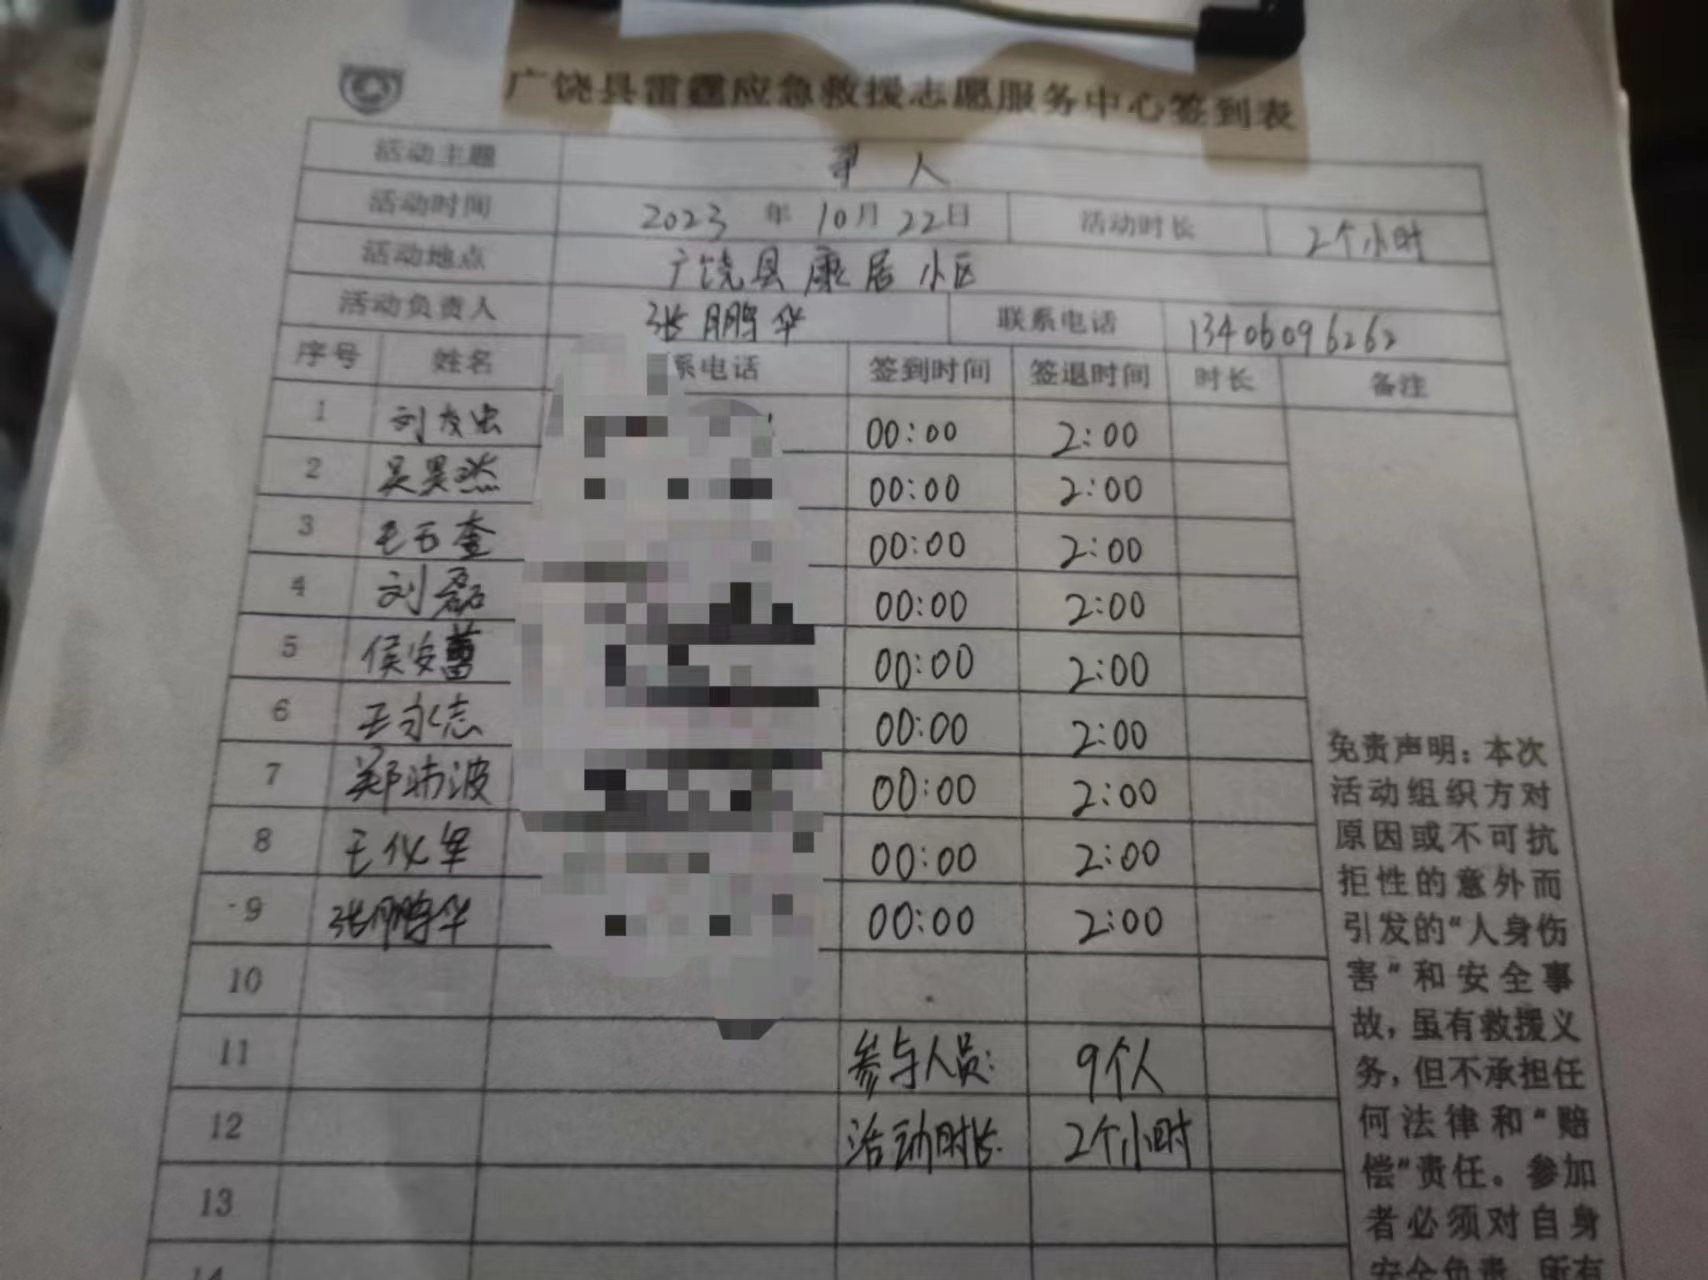 广饶县雷霆应急救援志愿服务中心签到表
活动主题 寻人
活动时间 2023年10月22日 活动时长 2个小时
活动地点 广饶县康居小区
活动负责人 张鹏华 联系电话 13406096262
序号 姓名 系电话 签到时间 签退时间 时长 备注
1 刘 00:00 2:00
2 吴昊然 00:00 2:00
3 00:00 2:00
4 刘磊 00:00 2:00
5 侯安 00:00 2:00
6 王永志 00:00 2:00
7 郑波 00:00 2:00
8 王仪军 00:00 2:00
9 张鹏华 00:00 2:00
10
11 参与人员: 9个人
12 活动时长 2个小时
13
14
免责声明：本次
活动组织方对
原因或不可抗
拒性的意外而
引发的“人身伤
害”和安全事
故，虽有救援义
务，但不承担任
何法律和“赔
偿”责任。参加
者必须对自身
安全负责，所有